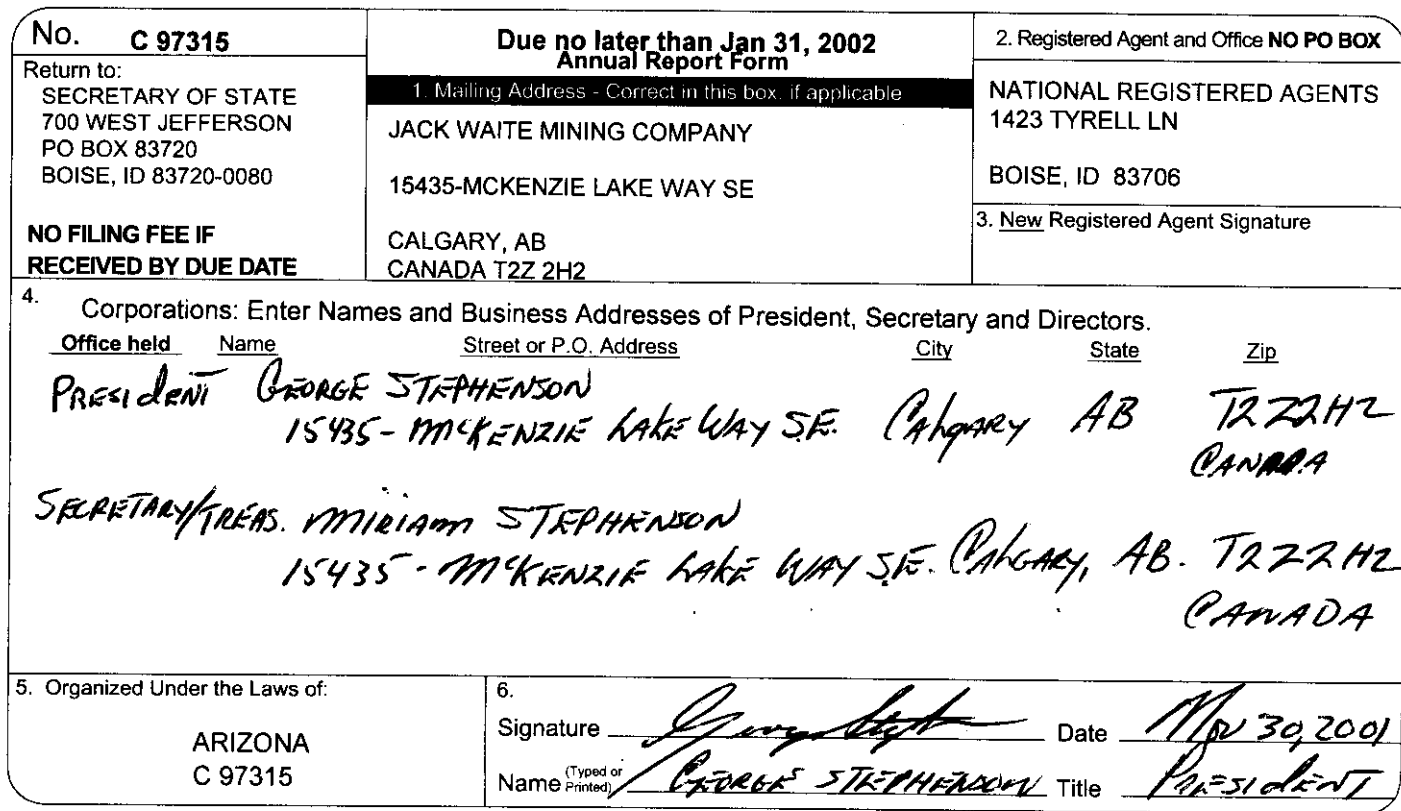 No. C 97315
Return to:
SECRETARY OF STATE
700 WEST JEFFERSON
PO BOX 83720
BOISE, ID 83720-0080
NO FILING FEE IF
RECEIVED BY DUE DATE
Due no later than Jan 31, 2002
Annual Report Form
1. Mailing Address - Correct in this box, if applicable
JACK WAITE MINING COMPANY
15435-MCKENZIE LAKE WAY SE
CALGARY, AB
CANADA T2Z 2H2
2. Registered Agent and Office NO PO BOX
NATIONAL REGISTERED AGENTS
1423 TYRELL LN
BOISE, ID 83706
3. New Registered Agent Signature
4. Corporations: Enter Names and Business Addresses of President, Secretary and Directors.
Office held Name Street or P.O. Address City State Zip
PRESIdENT GEORGE STEPHENSON
15435- McKENZIE LAKE WAY S.E. CALGARY AB T2Z2H2
CANADA
SECRETARY/TREAS. MIRIAM STEPHENSON
15435 - McKENZIE LAKE WAY S.E. CALGARY, AB. T2Z2H2
CANADA
5. Organized Under the Laws of:
ARIZONA
C 97315
6.
Signature George Steph Date Nov 30, 2001
Name (Typed or Printed) GEORGE STEPHENSON Title PRESIdENT